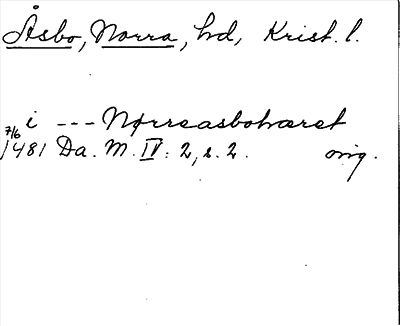 Åsbo, Norra, hd, Krist. l.
i --- Nørreasbohæret
7/6 1481 Da. M. IV: 2, s. 2. orig.